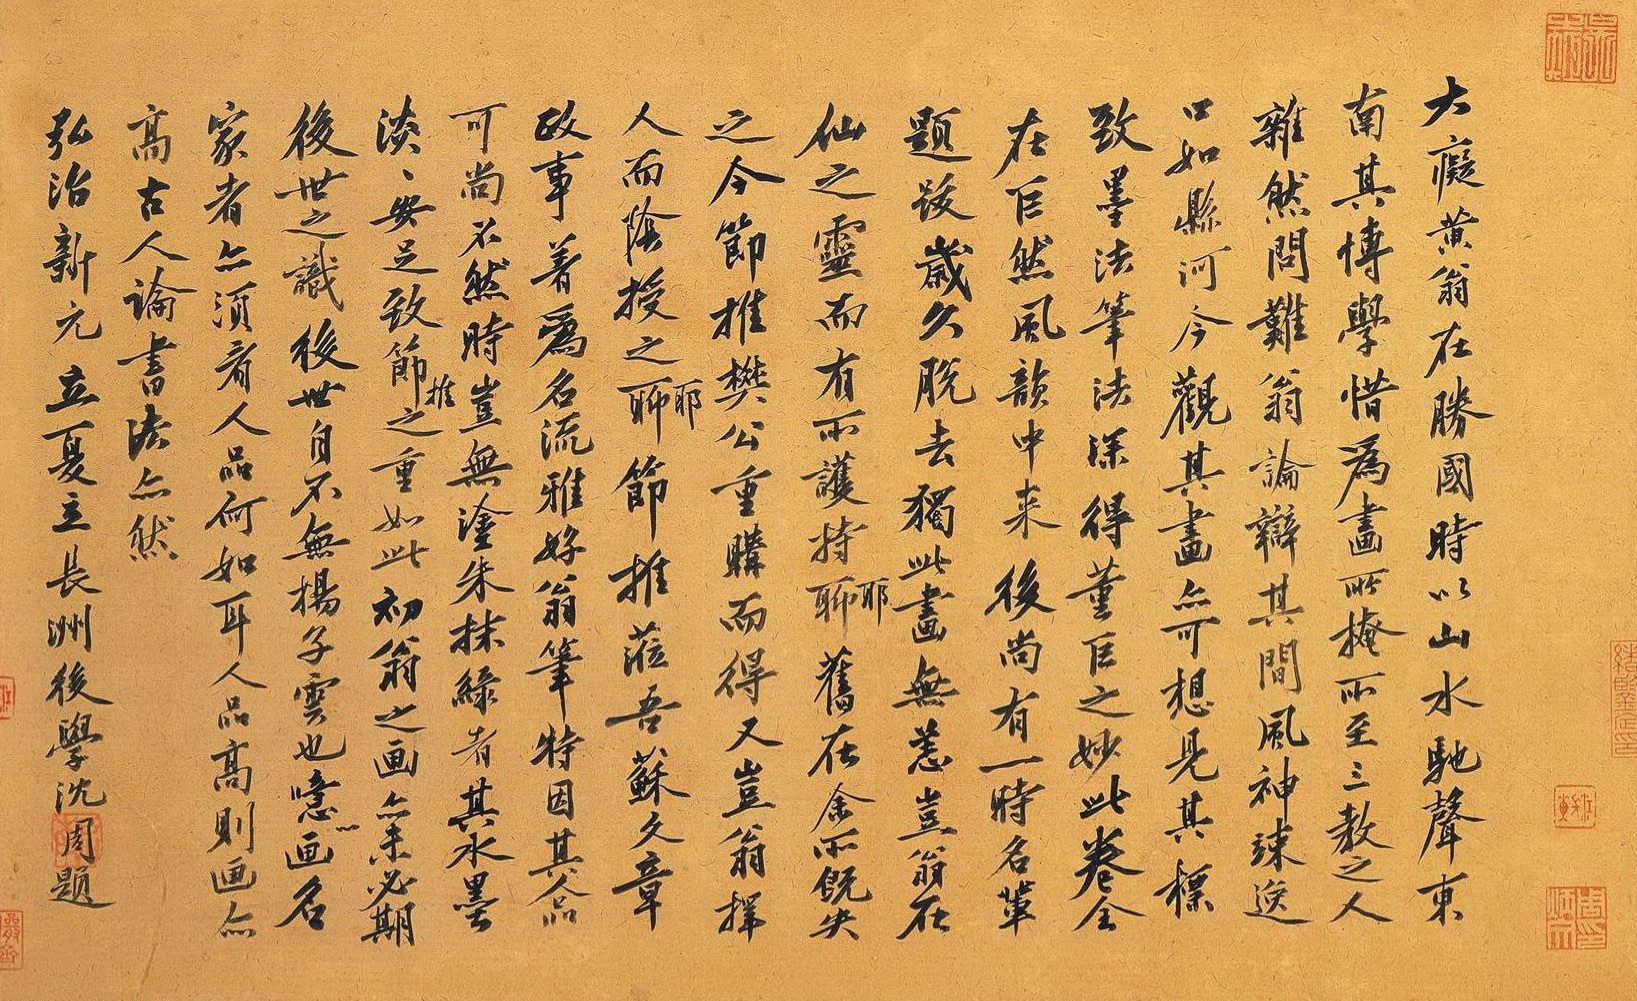 大癡黄翁在勝國時以山水馳聲東
南其博學惜為畫所掩所至三教之人
雜然問難翁論辯其間風神竦逸
口如懸河今觀其畫亦可想見其標
致墨法筆法深得董巨之妙此卷全
在巨然風韻中来後尚有一時名輩
題跋歲久脫去獨此畫無恙豈翁在
仙之靈而有所護持聊耶舊在余所既失
之今節推樊公重購而得又豈翁擇
人而陰授之聊耶節推蒞吾蘇文章
政事著為名流雅好翁筆特因其人品
可尚不然時豈無塗朱抹綠者其水墨
淡丶安足致節推之重如此初翁之画亦未必期
後世之識後世自不無揚子雲也噫画名
家者亦須看人品何如耳人品高則画亦
高古人論書法亦然
弘治新元立夏立長洲後學沈周題